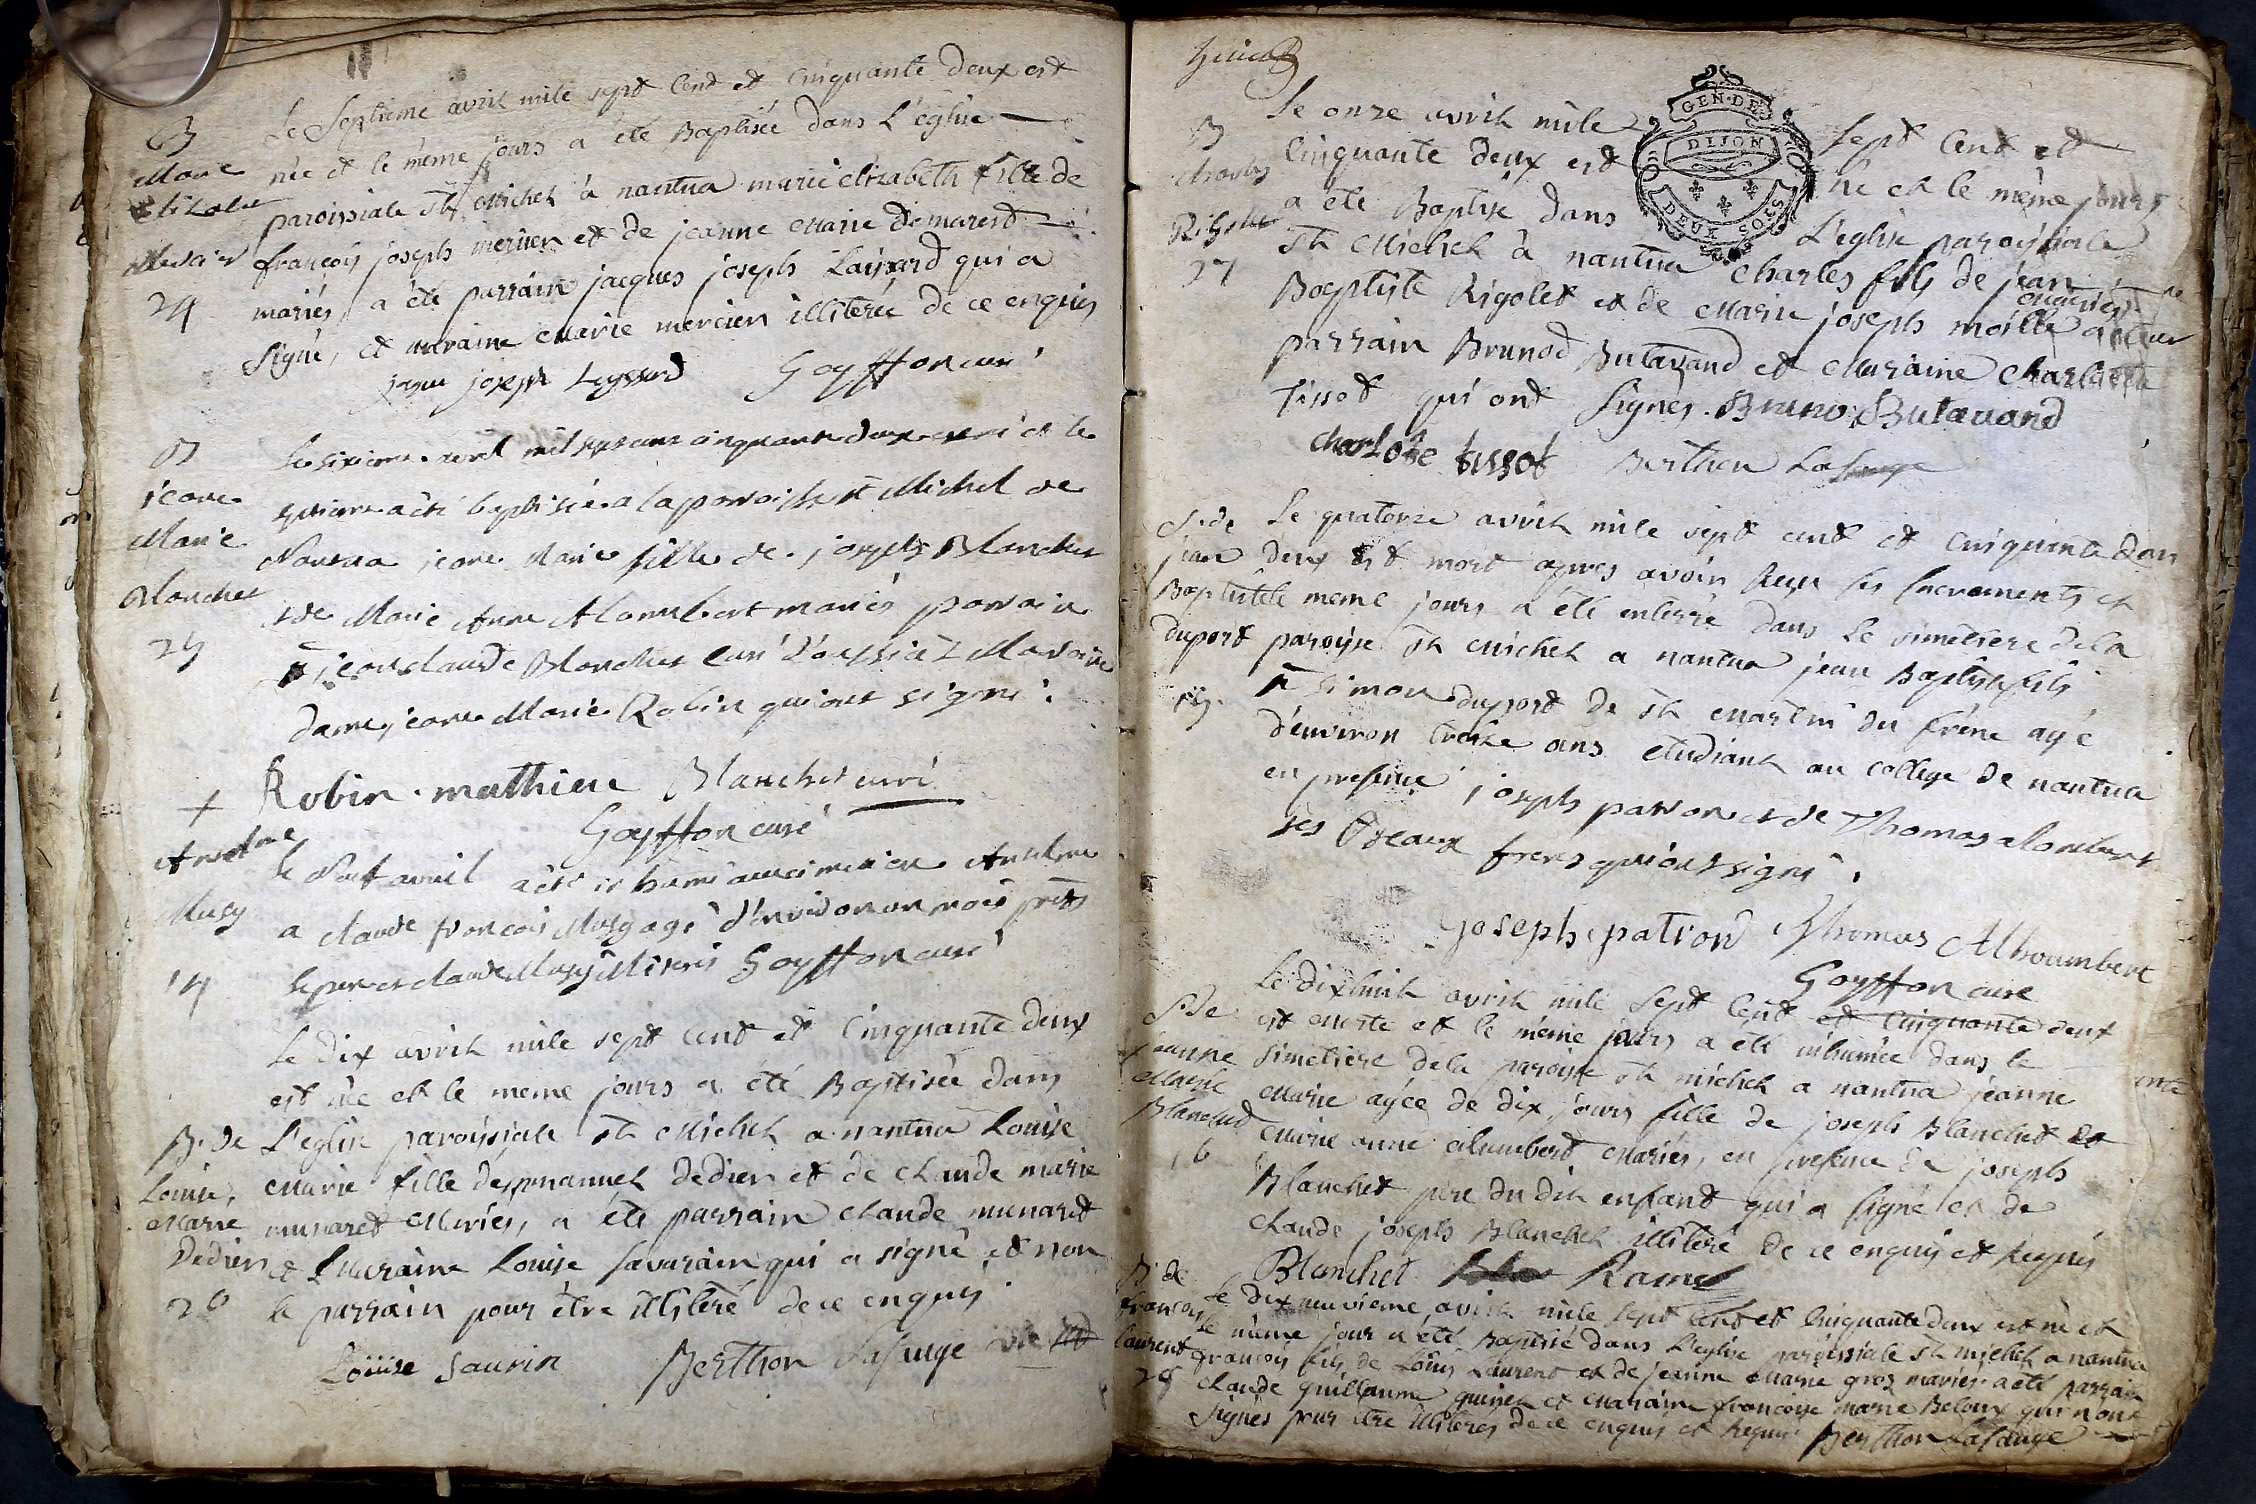 B
Marie
Elizabet
Mercier
24
Le Septieme avril mile sept Cend et Cinquante deux est
née et le même jours a été Baptisée dans L'église
paroissiale St Michel à nantua marie elizabeth fille de
françois joseph mercier et de jeanne Marie Demarest
mariés, a été parrain jacques joseph Laissard qui a
signé, et maraine Marie mercier illiterée de ce enquis
jaque joseph Leyssard Goyffon curé
B
jeane
Marie
Blanchet
25
Le sixieme avril mil sept cent cinquante deux est né et le
a été baptisée a la paroisse st Michel de
Nantua jeane Marie fille de joseph Blanchet
et de Marie Anne Alombert mariés parrain
jean claude Blanchet curé d'oussiat Maraine
dame jeane Marie Robin qui ont signé
Robin mathieu Blanchet curé
Goyffon curé
+
Anselme
Musy
14
le Neuf avril a été inhumé au cimetiere Anselme
a claude françois Musy agé d'environ un mois pnts
le pere et claude Musy Goyffon curé
B. de
Louise
Marie
Dedier
26
Le dix avril mile sept cent et Cinquante deux
est née et le meme jours a été Baptisée dans
L'eglise paroissiale St Michel a nantua Louise
Marie fille d'emmanuel Dedier et de claude marie
munaret Mariés, a été parrain claude munaret
et Maraine Louise savarain qui a signé et non
le parrain pour être illiteré de ce enquis
Loüise Saurin Berthon Lafauge
B
Charles
Rigolet
27
Le onze avril mile Sept Cent et
Cinquante deux est né et le même jours
a été Baptisé dans L'eglise paroissiale
St Michel à nantua Charles fils de jean
Baptiste Rigolet et de Marie joseph moille mariés a été
parrain Brunod Butavand et Maraine Charlotte
Tissot qui ont signés. Bruno Butavand
charLote tissot Berthon Lafauge
GEN. DE
DIJON
DEUX SOLS
S. de
jean
Baptiste
duport
15.
Le quatorze avril mile sept cent et Cinquante
deux est mort apres avoir Reçu les sacrements et
le meme jours a été enterré dans le simetiere de la
paroisse St Michel a nantua jean Baptiste fils
a simon duport de St Martin du frêne agé
d'environ treize ans etudiant au college de nantua
en presence joseph patron et de Thomas alombert
freres qui ont signé.
Joseph patron Thomas Alhoumbert
Goyffon curé
S. de
jeanne
Marie
Blanchet
16
Le dixhuit avril mile sept Cent et Cinquante deux
est Morte et le même jours a été inhumée dans le
simetiere de la paroisse St michel a nantua jeanne
Marie agée de dix jours fille de joseph Blanchet et
Marie anne alumbert Mariés, en presence de joseph
Blanchet pere du dit enfant qui a signé et de
claude joseph Blanchet illiteré de ce enquis et Requis
Blanchet Ramel
B. de
françois
laurent
28
Le dix neuvieme avril mile sept Cent et Cinquante deux est né et
le même jour a été Baptisé dans L'eglise paroissiale St michel a nantua
françois fils de Loüis Laurent et de jeanne Marie gros mariés a été parrain
claude guillaume guinet et Maraine françoise marie Beloux qui n'ont
signés pour etre illiterés de ce enquis et Requis Berthon Lafauge